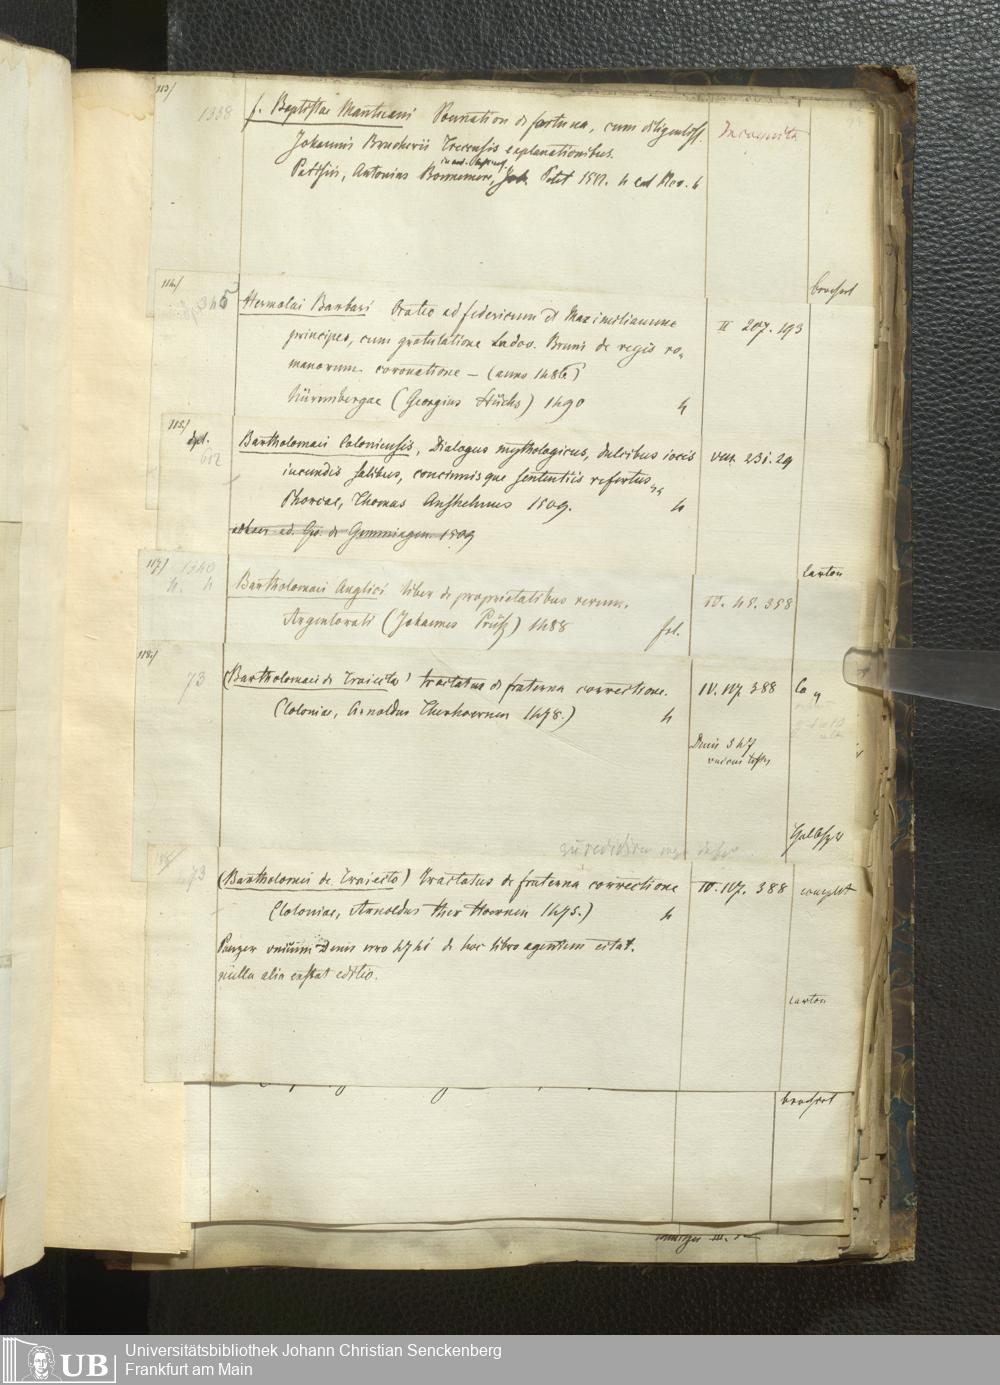 113/
1338
f. Baptistae Mantuani Bonnation de fortuna, cum diligentiss. Incognita
Johannis explanationibus.
Parisiis, Antonius Bonnemere, Joh. Petit 1511. 4
brochirt
114/
345
Hermolai Barbari Oratio ad federicum et Maximilianum II 207. 193
principes, cum gratulatione Ludov. Bruni de regis ro-
manorum coronatione — (anno 1486)
Nürmbergae (Georgius Stüchs) 1490 4
115/
612
Bartholomaei Coloniensis, Dialogus mythologicus, dulcibus iocis VIII. 231. 29
iucundis salibus, concinnisque sententiis refertus
Phorcae, Thomas Anshelmus 1509. 4
de Gemmingen 1509
Carton
117/ 1340
4. 4
Bartholomaei Anglici liber de proprietatibus rerum. IV. 45. 358
Argentorati (Johannes Prüß) 1488 fol.
118/
73
(Bartholomaei de Traiecto) tractatus de fraterna correctione. IV. 117. 388
(Coloniae, Arnoldus Therhoernen 1478.) 4
Denis 547
unicus testis
73
(Bartholomaei de Traiecto) Tractatus de fraterna correctione IV. 117. 388 complet
(Coloniae, Arnoldus ther Hoernen 1475.) 4
Panzer unicum Denis de hoc libro agentem citat.
nulla alia exstat editio.
carton
brochirt
Universitätsbibliothek Johann Christian Senckenberg
Frankfurt am Main
UB